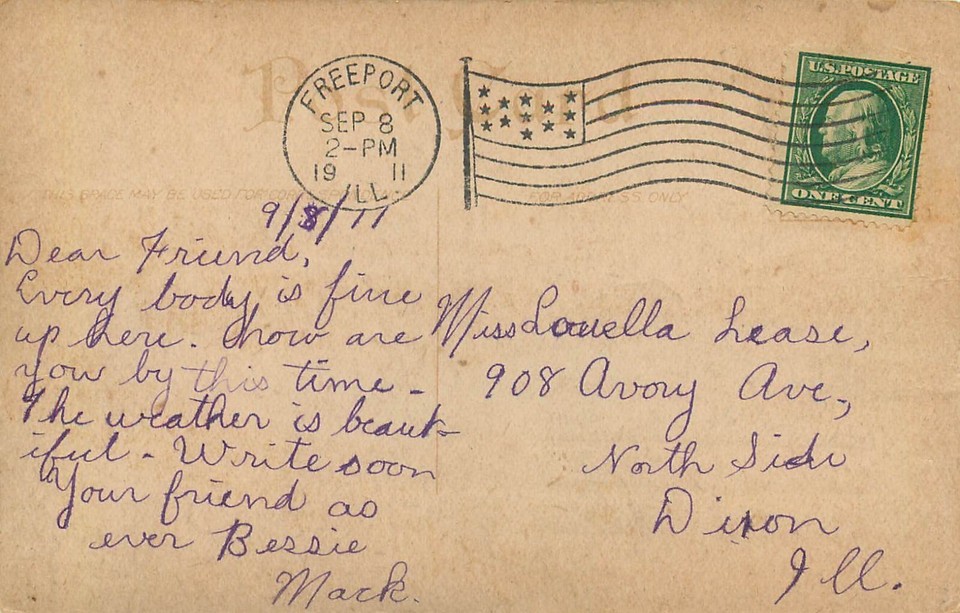 Post Card
FREEPORT
SEP 8
2-PM
19 11
ILL
U.S. POSTAGE
ONE CENT
THIS SPACE MAY BE USED FOR CORRESPONDENCE
FOR ADDRESS ONLY
9/8/11
Dear Friend,
Every body is fine
up here. how are
you by this time -
The weather is beaut-
iful - Write soon
Your friend as
ever Bessie
Mack.
Miss Louella Lease,
908 Avory Ave.,
North Side
Dixon
Ill.